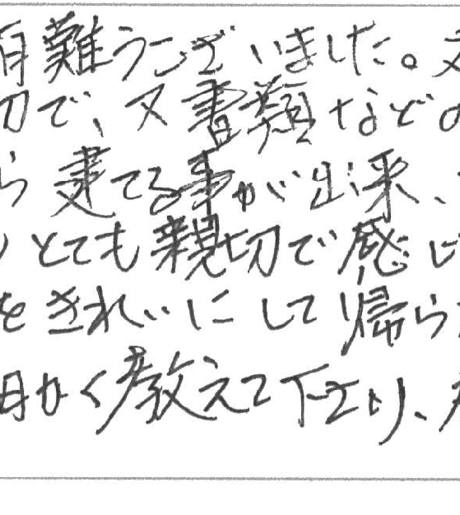 有難うございました。
切で、又書類などの
ら建てる事が出来、
とても親切で感じ
をきれいにして帰ら
細かく教えて下さり、